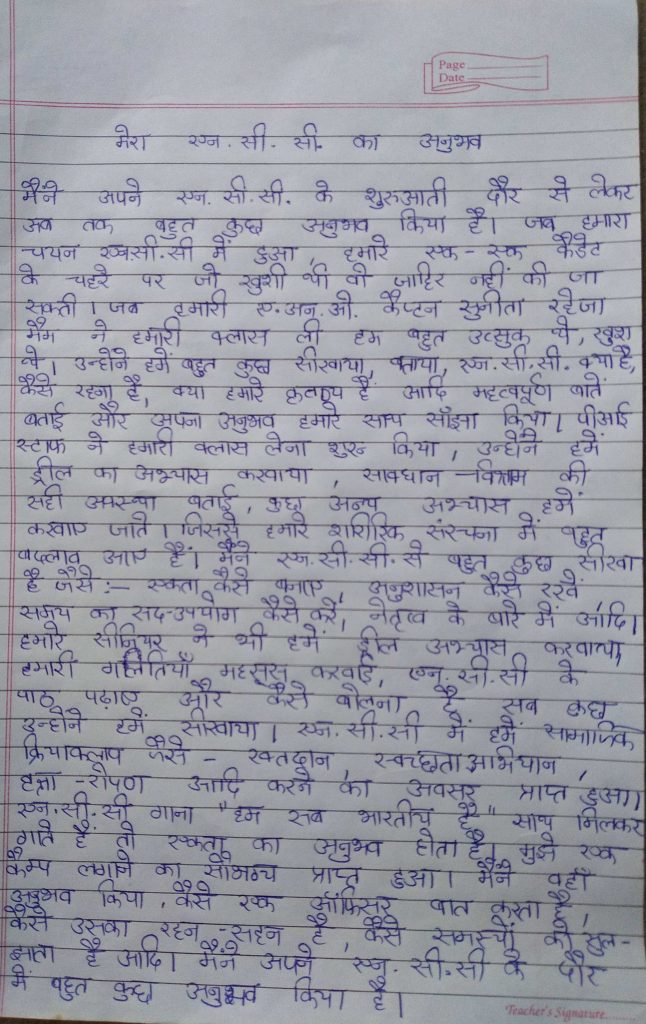 Page
Date
मेरा एन.सी.सी. का अनुभव
मैंने अपने एन.सी.सी. के शुरुआती दौर से लेकर
अब तक बहुत कुछ अनुभव किया है। जब हमारा
चयन एनसी.सी में हुआ, हमारे एक-एक कैडेट
के चहरे पर जो खुशी थी वो जाहिर नहीं की जा
सक्ती। जब हमारी ए.अन.ओ. कैप्टन सुनीता रहेजा
मैम ने हमारी क्लास ली हम बहुत उत्सुक थे, खुश
थे। उन्होने हमें बहुत कुछ सीखाया, बताया, एन.सी.सी. क्या है,
कैसे रहना है, क्या हमारे कर्तव्य हैं आदि महत्वपूर्ण बातें
बताई और अपना अनुभव हमारे साथ साँझा किया। पीआई
स्टाफ ने हमारी क्लास लेना शुरु किया, उन्होने हमें
ड्रील का अभ्यास करवाया, सावधान-विश्राम की
सही अवस्था बताई, कुछ अन्य अभ्यास हमें
करवाए जाते। जिससे हमारे शारिरिक संरचना में बहुत
बदलाव आए हैं। मैंने एन.सी.सी. से बहुत कुछ सीखा
है जैसे:- एकता कैसे बनाए, अनुशासन कैसे रखें,
समय का सद-उपयोग कैसे करें, नेतृत्व के बारे में आदि।
हमारे सीनियर ने भी हमें ड्रील अभ्यास करवाया,
हमारी गलतियाँ महसूस करवाई, एन.सी.सी के
पाठ पढ़ाए और कैसे बोलना है सब कुछ
इन्होने हमें सीखाया। एन.सी.सी में हमें सामाजिक
क्रियाक्लाप जैसे - रक्तदान, स्वच्छता अभियान,
-रोपण आदि करने का अवसर प्राप्त हुआ।
एन.सी.सी गाना "हम सब भारतीय है" साथ मिलकर
गाते हैं तो एकता का अनुभव होता है। मुझे एक
कैम्प लगाने का सौभग्य प्राप्त हुआ। मैंने वहाँ
अनुभव किया, कैसे एक ऑफिसर बात करता है,
कैसे उसका रहन-सहन है, कैसे समस्यों को सुल-
झाता है आदि। मैंने अपने एन.सी.सी के दौर
में बहुत कुछ अनुभव किया है।
Teacher's Signature.........